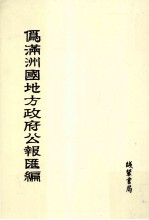 僞滿洲國地方政府公報匯編
綫裝書局